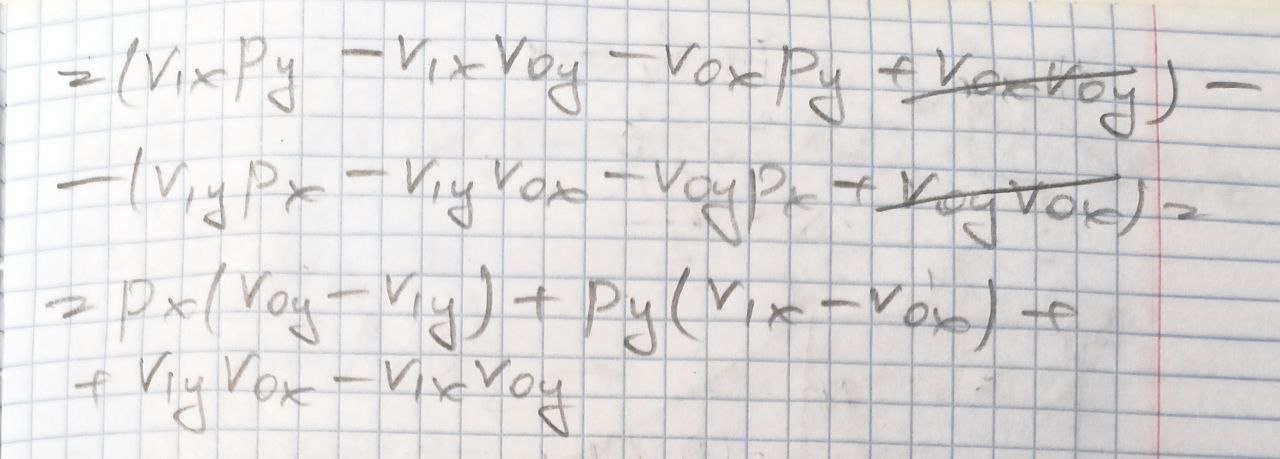 =(V₁ₓPy - V₁ₓV₀y - V₀ₓPy + V₀ₓV₀y) -
-(V₁yPₓ - V₁yV₀ₓ - V₀yPₓ + V₀yV₀ₓ) =
= Pₓ(V₀y - V₁y) + Py(V₁ₓ - V₀ₓ) +
+ V₁yV₀ₓ - V₁ₓV₀y